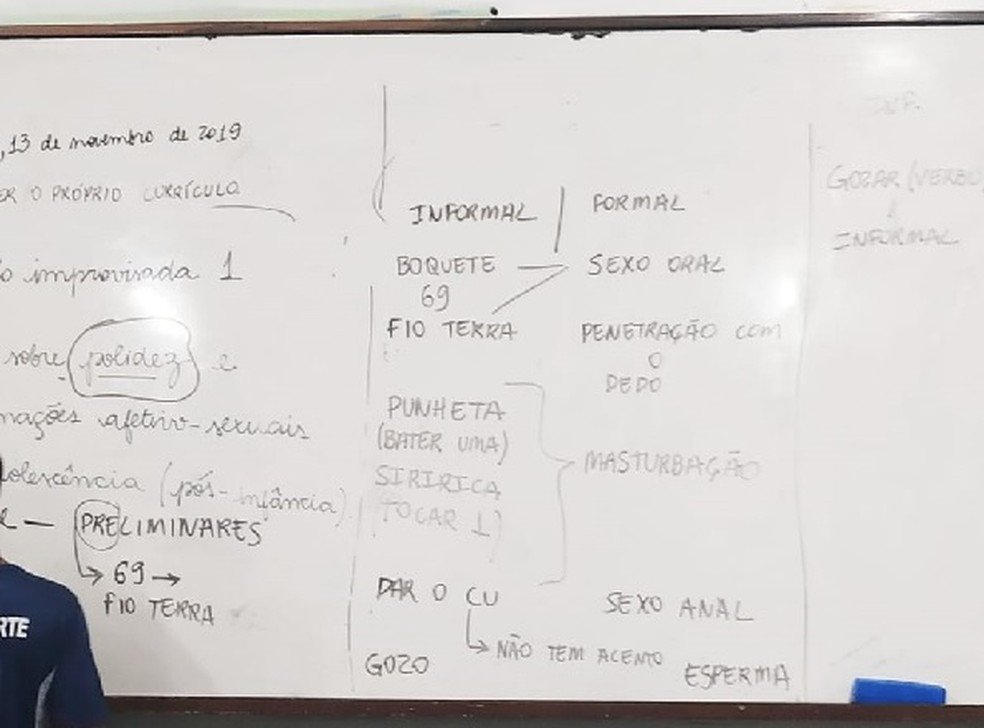 , 13 de novembro de 2019
ER O PRÓPRIO CURRÍCULO
o improvisada 1
sobre polidez e
mações afetivo-sexuais
olescência (pós-infância)
— PRELIMINARES
→ 69 →
FIO TERRA
RTE
INFORMAL
BOQUETE
69
FIO TERRA
PUNHETA
(BATER UMA)
SIRIRICA
TOCAR 1)
DAR O CU
→ NÃO TEM ACENTO
GOZO
FORMAL
SEXO ORAL
PENETRAÇÃO COM
O
DEDO
MASTURBAÇÃO
SEXO ANAL
ESPERMA
INF.
GOZAR (VERBO)
INFORMAL